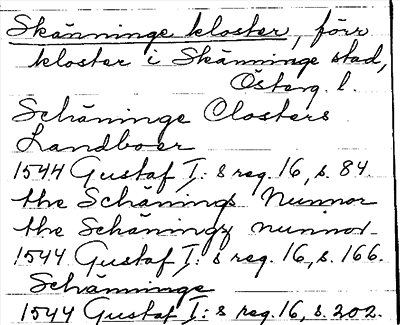 Skänninge kloster, förr
kloster i Skänninge stad,
Österg. l.
Schäninge Closters
Landboer
1544 Gustaf I: s reg. 16, s. 84.
the Schänings Nunnor
the Schäningz nunnor
1544 Gustaf I: s reg. 16, s. 166.
Schänninge
1544 Gustaf I: s reg. 16, s. 202.